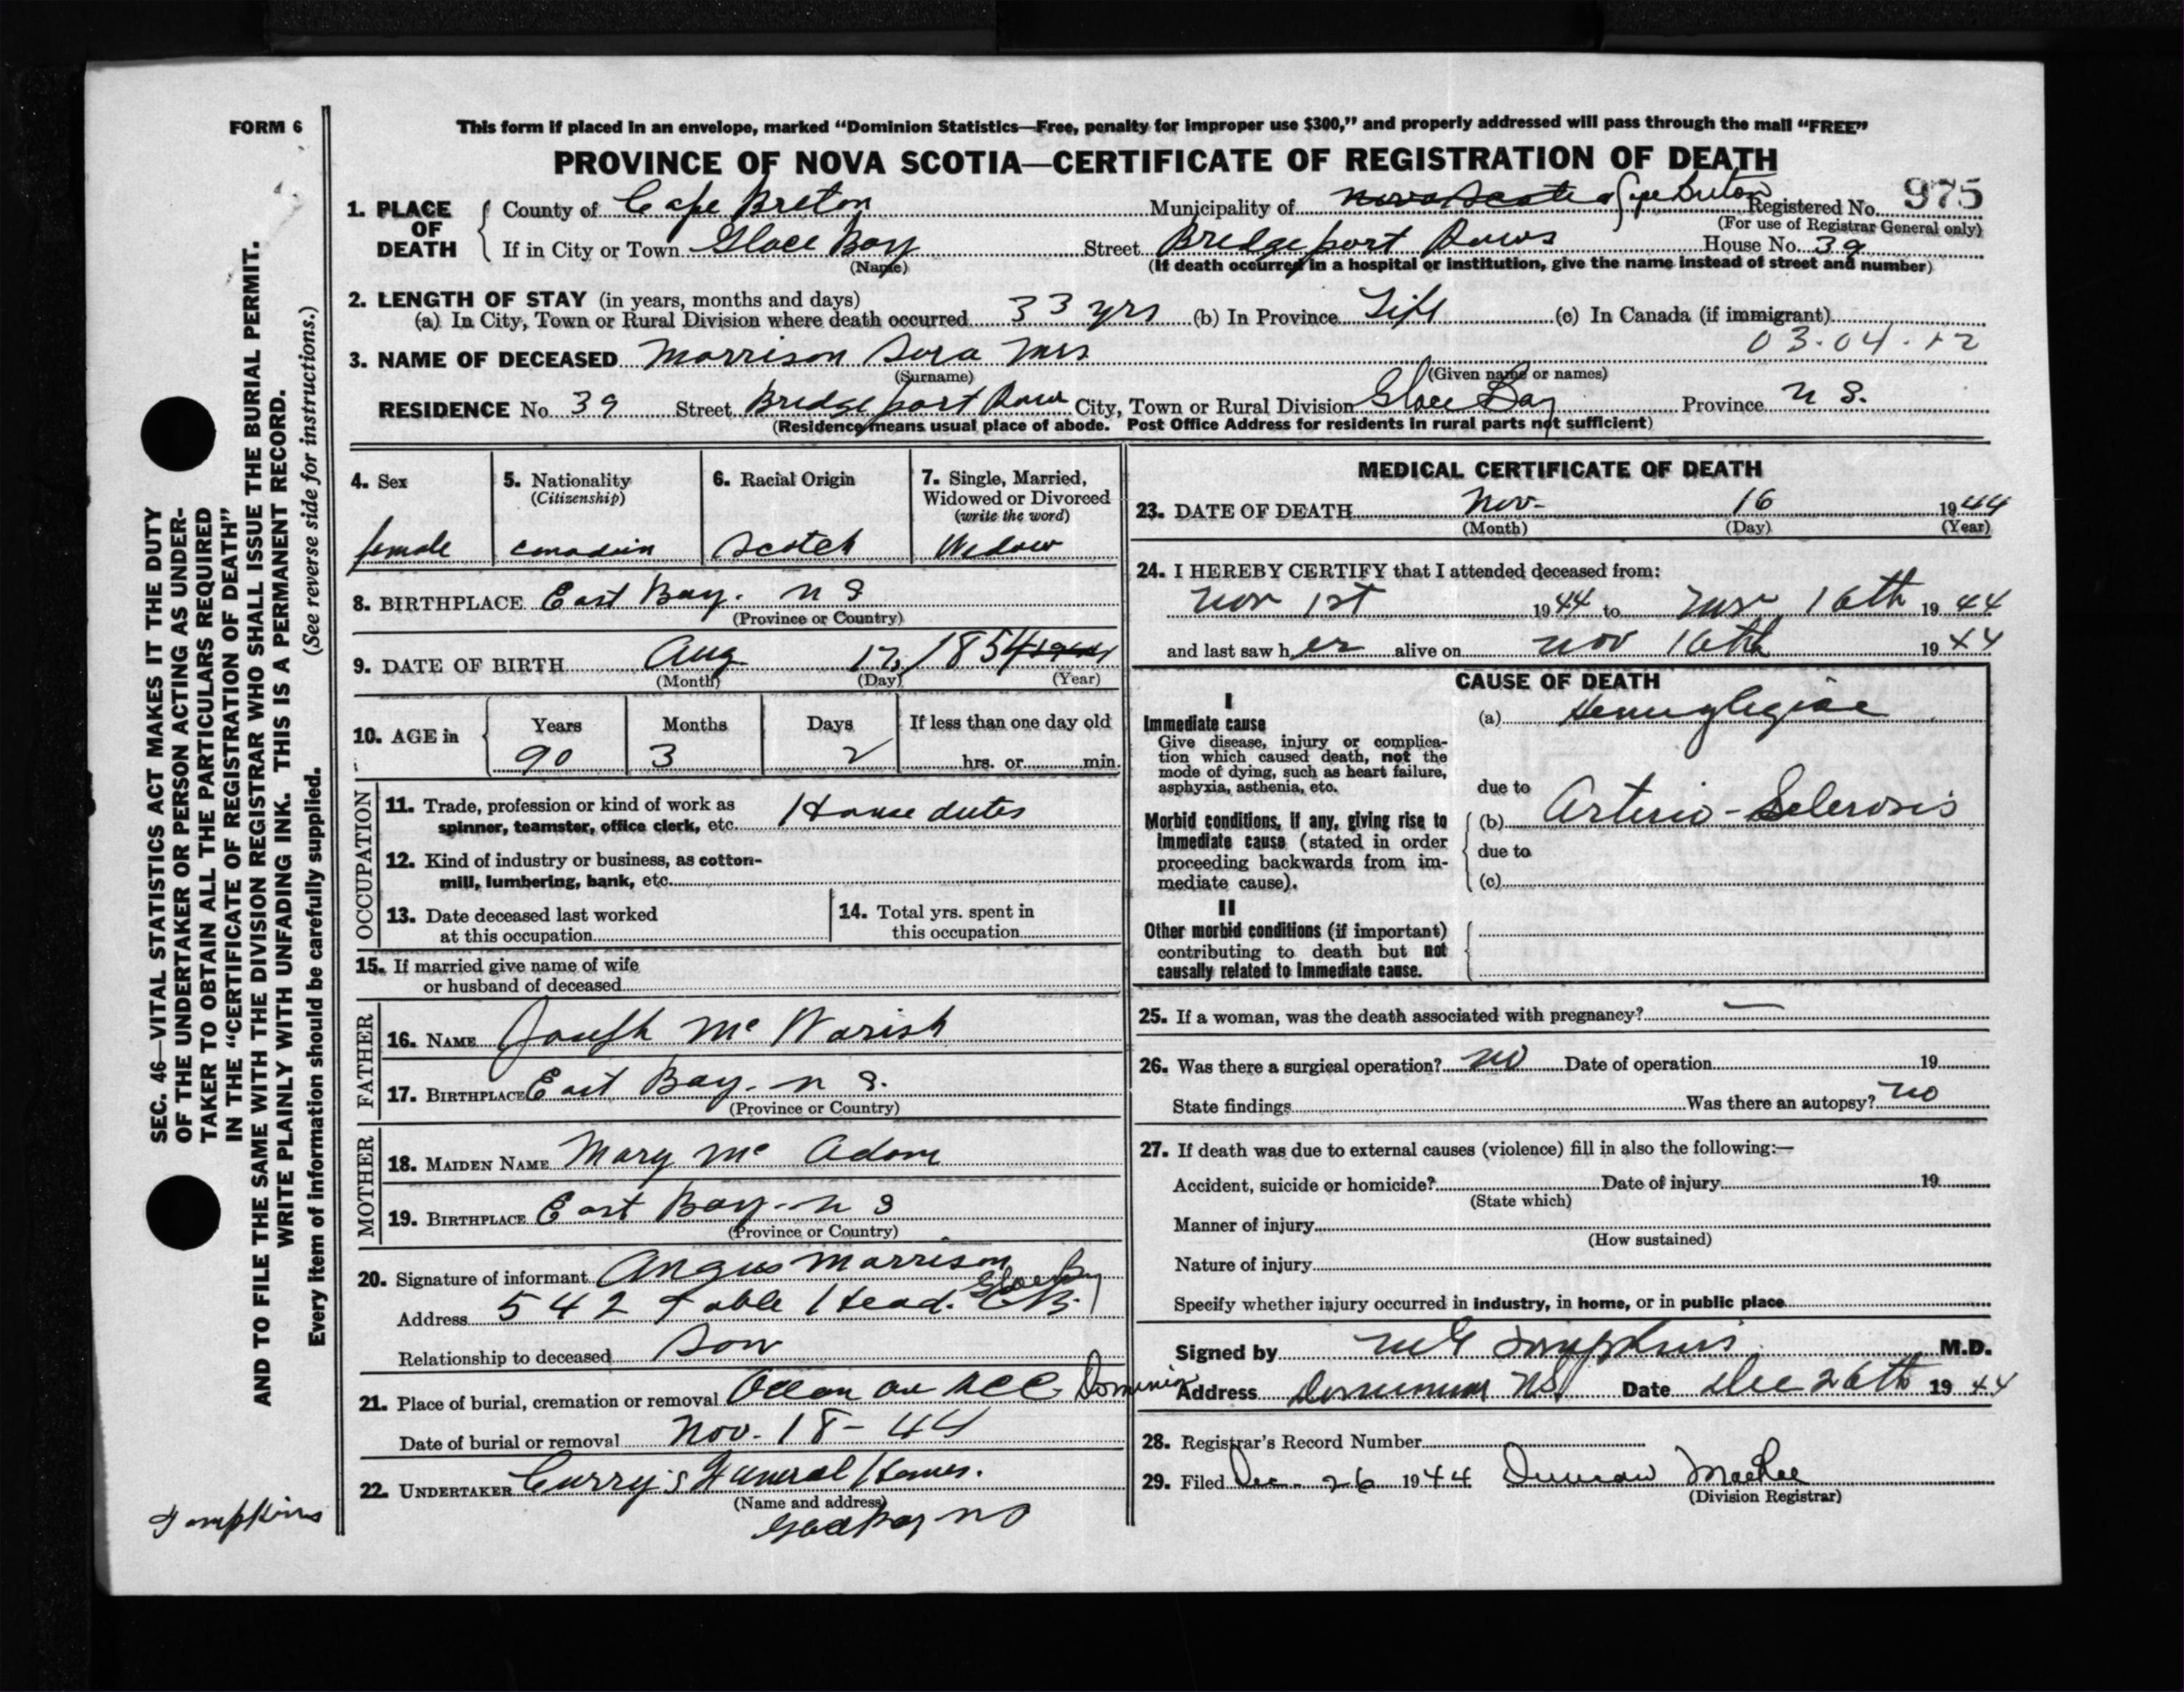 FORM 6
This form if placed in an envelope, marked “Dominion Statistics—Free, penalty for improper use $300,” and properly addressed will pass through the mail “FREE”
PROVINCE OF NOVA SCOTIA—CERTIFICATE OF REGISTRATION OF DEATH
1. PLACE OF DEATH
County of Cape Breton Municipality of Nova Scotia Cape Breton Registered No. 975
(For use of Registrar General only)
If in City or Town Glace Bay Street Bridgeport Rows House No. 39
(Name) (If death occurred in a hospital or institution, give the name instead of street and number)
2. LENGTH OF STAY (in years, months and days)
(a) In City, Town or Rural Division where death occurred 33 yrs (b) In Province Life (c) In Canada (if immigrant)
03.04.12
3. NAME OF DECEASED Morrison Sera Mrs
(Surname) (Given name or names)
RESIDENCE No 39 Street Bridgeport Row City, Town or Rural Division Glace Bay Province N S.
(Residence means usual place of abode. Post Office Address for residents in rural parts not sufficient)
4. Sex
female
5. Nationality
(Citizenship)
Canadian
6. Racial Origin
Scotch
7. Single, Married,
Widowed or Divorced
(write the word)
Widow
8. BIRTHPLACE East Bay. N S
(Province or Country)
9. DATE OF BIRTH Aug 17, 1854 1944
(Month) (Day) (Year)
10. AGE in
Years Months Days If less than one day old
90 3 2 hrs. or min.
OCCUPATION
11. Trade, profession or kind of work as
spinner, teamster, office clerk, etc. House duties
12. Kind of industry or business, as cotton-
mill, lumbering, bank, etc.
13. Date deceased last worked
at this occupation
14. Total yrs. spent in
this occupation
15. If married give name of wife
or husband of deceased
FATHER
16. NAME Joseph Mc Warish
17. BIRTHPLACE East Bay. N S.
(Province or Country)
MOTHER
18. MAIDEN NAME Mary Mc Adam
19. BIRTHPLACE East Bay - N S
(Province or Country)
20. Signature of informant Angus Morrison
Glace Bay
Address 542 Table Head. CB.
Relationship to deceased Son
21. Place of burial, cremation or removal Dominion
Date of burial or removal Nov. 18 - 44
22. UNDERTAKER Curry's Funeral Homes.
(Name and address)
Glace Bay NS
MEDICAL CERTIFICATE OF DEATH
23. DATE OF DEATH Nov- 16 1944
(Month) (Day) (Year)
24. I HEREBY CERTIFY that I attended deceased from:
Nov 1st 1944 to Nov 16th 1944
and last saw her alive on Nov 16th 1944
CAUSE OF DEATH
I
Immediate cause
Give disease, injury or complica-
tion which caused death, not the
mode of dying, such as heart failure,
asphyxia, asthenia, etc.
(a) Hemiplegiae
due to
Morbid conditions, if any, giving rise to
immediate cause (stated in order
proceeding backwards from im-
mediate cause).
(b) Arterio-Sclerosis
due to
(c)
II
Other morbid conditions (if important)
contributing to death but not
causally related to immediate cause.
25. If a woman, was the death associated with pregnancy? —
26. Was there a surgical operation? no Date of operation 19
State findings Was there an autopsy? no
27. If death was due to external causes (violence) fill in also the following:—
Accident, suicide or homicide? Date of injury 19
(State which)
Manner of injury
(How sustained)
Nature of injury
Specify whether injury occurred in industry, in home, or in public place
Signed by Tompkins M.D.
Address Dominion NS Date Dec 26th 1944
28. Registrar's Record Number
29. Filed Dec. 26 1944 Duncan MacRae
(Division Registrar)
SEC. 46—VITAL STATISTICS ACT MAKES IT THE DUTY
OF THE UNDERTAKER OR PERSON ACTING AS UNDER-
TAKER TO OBTAIN ALL THE PARTICULARS REQUIRED
IN THE “CERTIFICATE OF REGISTRATION OF DEATH”
AND TO FILE THE SAME WITH THE DIVISION REGISTRAR WHO SHALL ISSUE THE BURIAL PERMIT.
WRITE PLAINLY WITH UNFADING INK. THIS IS A PERMANENT RECORD.
Every item of information should be carefully supplied. (See reverse side for instructions.)
Tompkins